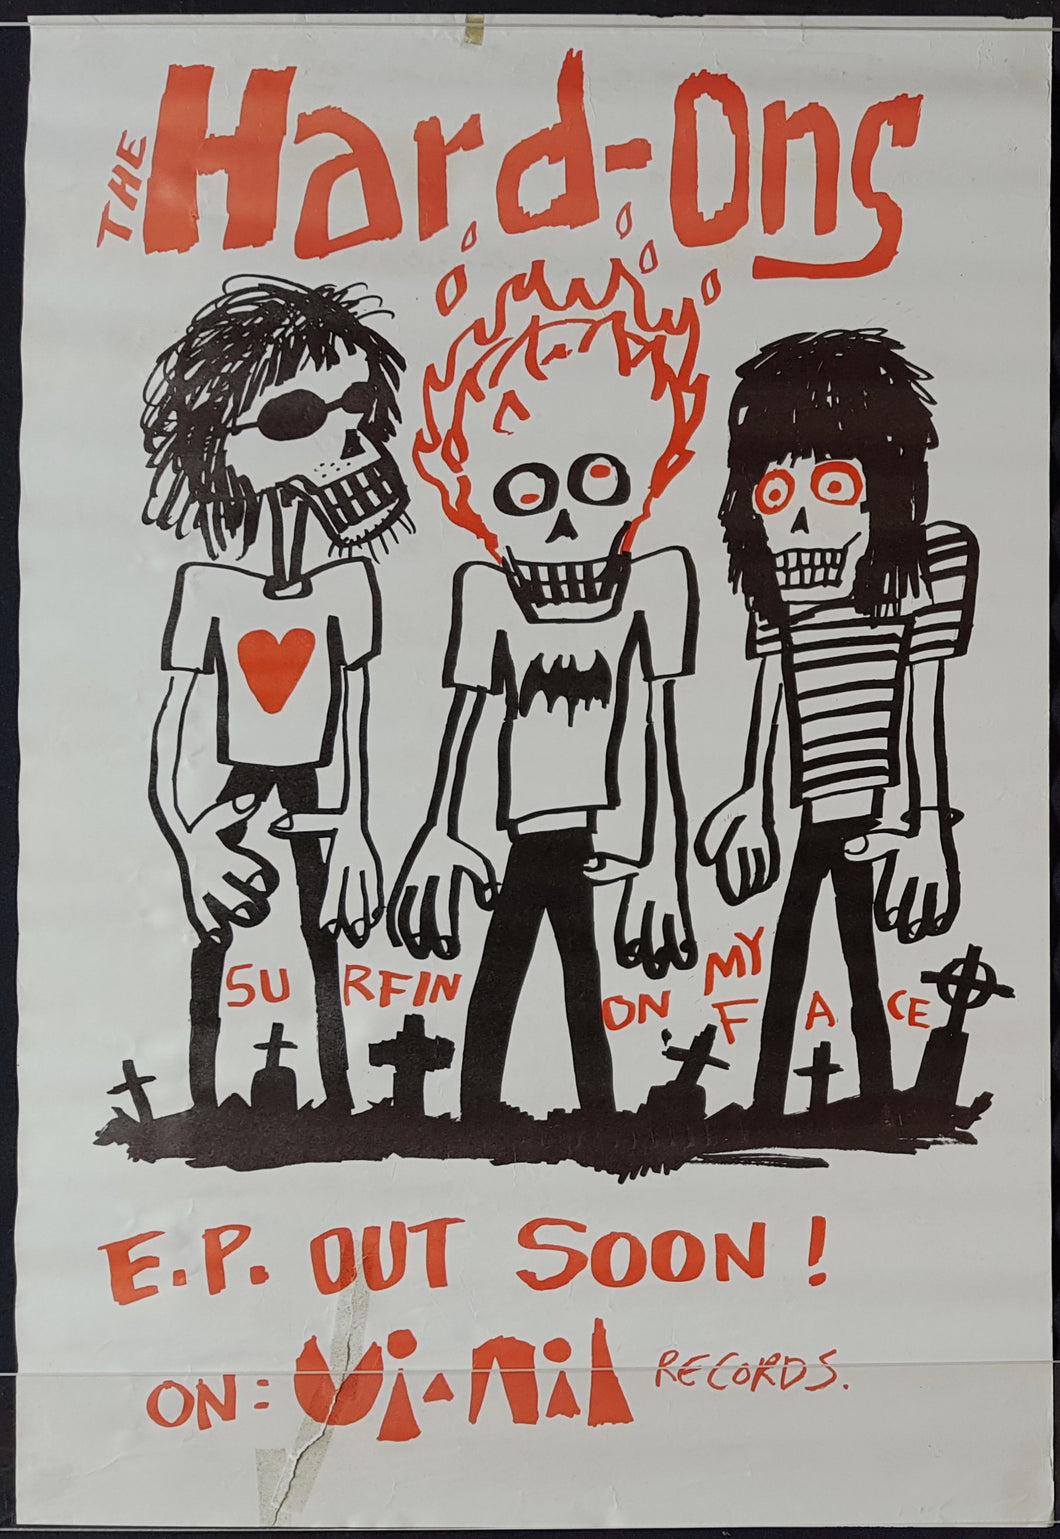 THE Hard-Ons
SURFIN ON MY FACE
E.P. OUT SOON!
ON: Vi-nil RECORDS.